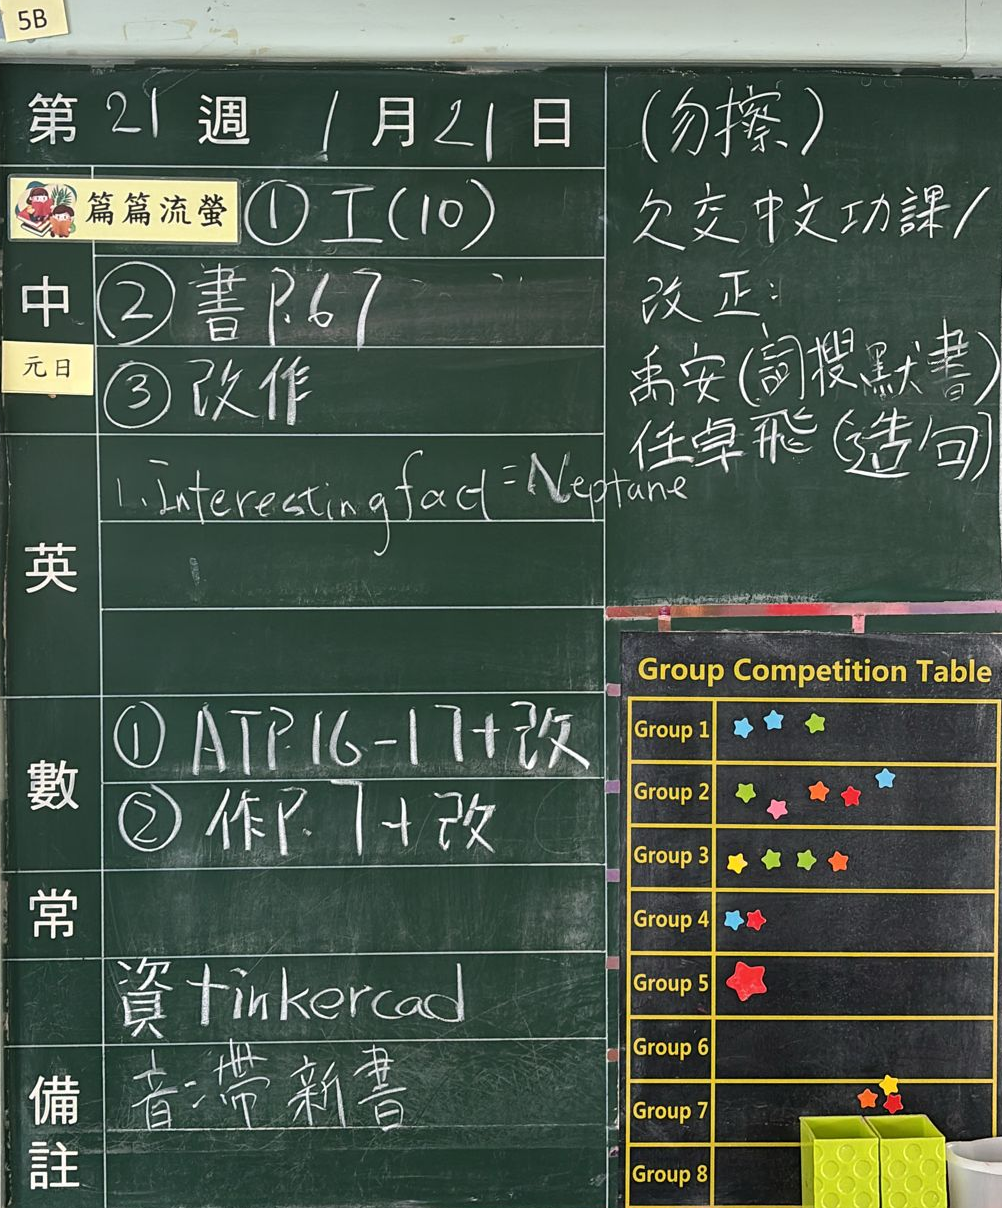 5B
第 21 週 1 月 21 日
篇篇流螢 ① 工(10)
中 ② 書 P.67
元日
③ 改作
英
1. Interesting fact = Neptane
數
① AT P.16-17+改
② 作 P.7+改
常
資 tinkercad
備註
音:帶新書
(勿擦)
欠交中文功課/
改正:
禹安(詞搜默書)
任卓飛(造句)
Group Competition Table
Group 1
Group 2
Group 3
Group 4
Group 5
Group 6
Group 7
Group 8